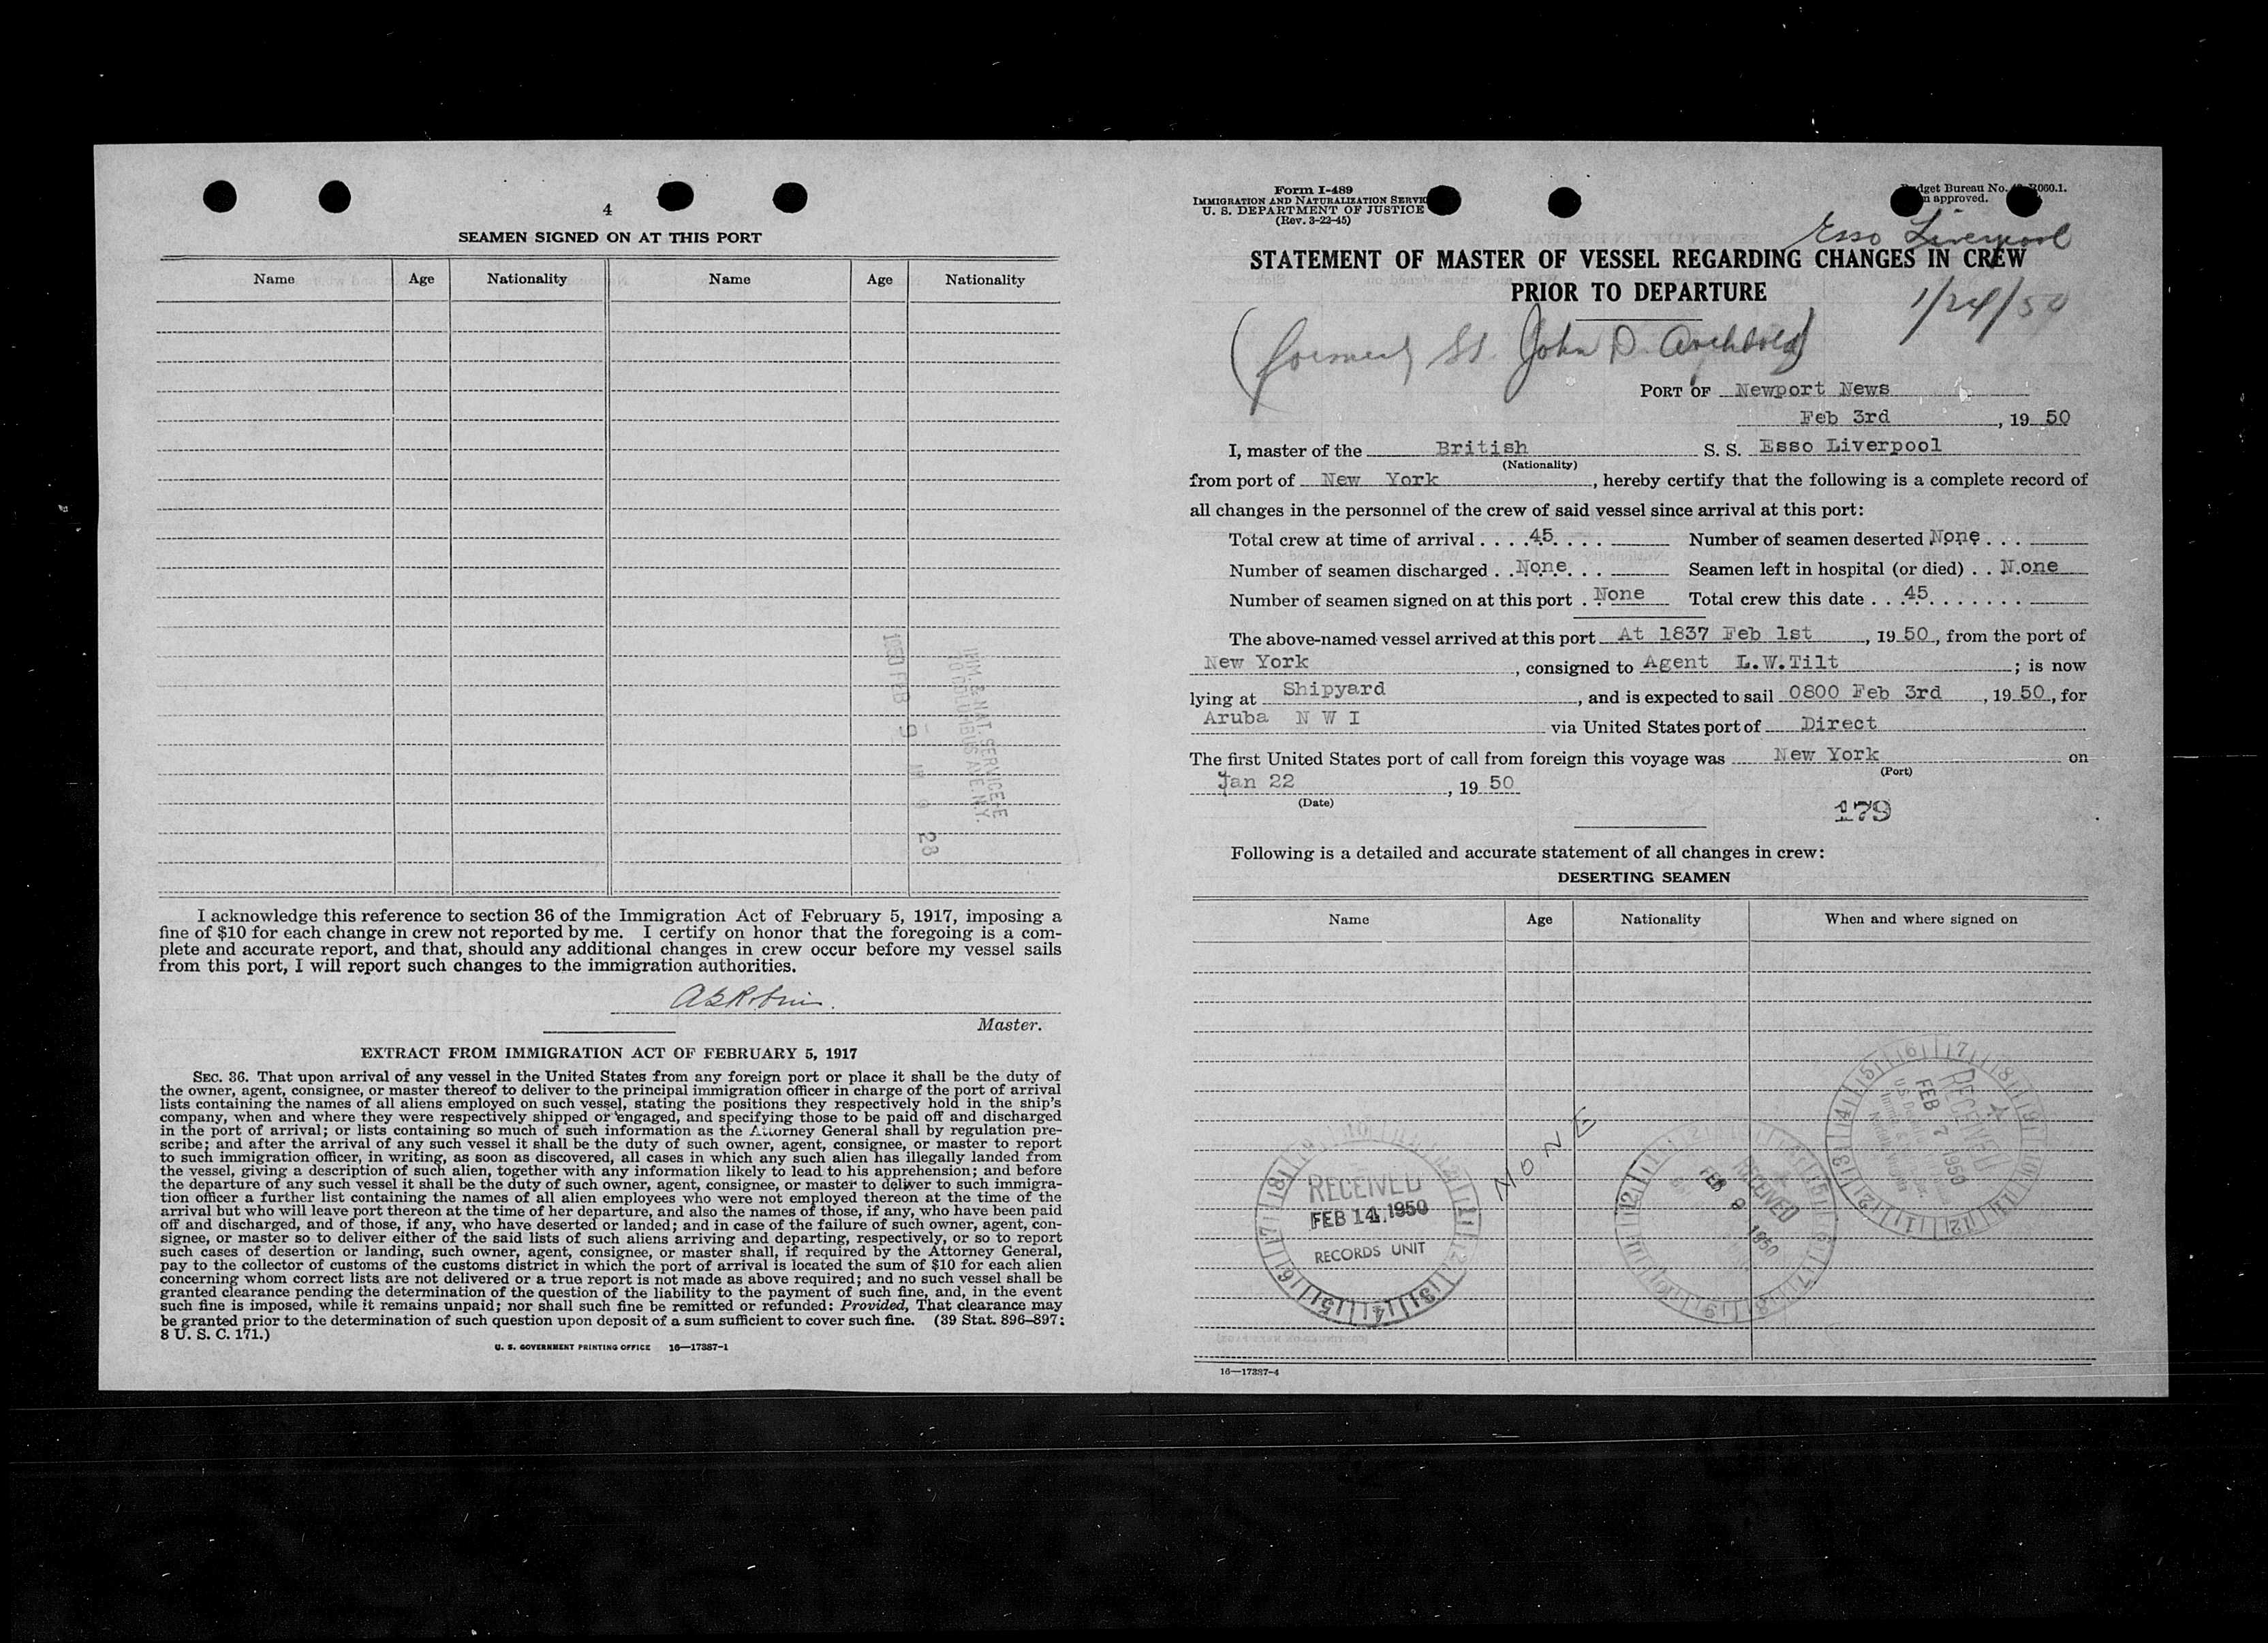 4
SEAMEN SIGNED ON AT THIS PORT
Name Age Nationality Name Age Nationality
1950 FEB 9 23
IMM. & NAT. SERVICE
COLUMBUS AVE. N.Y.
I acknowledge this reference to section 36 of the Immigration Act of February 5, 1917, imposing a
fine of $10 for each change in crew not reported by me. I certify on honor that the foregoing is a com-
plete and accurate report, and that, should any additional changes in crew occur before my vessel sails
from this port, I will report such changes to the immigration authorities.
Master.
EXTRACT FROM IMMIGRATION ACT OF FEBRUARY 5, 1917
SEC. 36. That upon arrival of any vessel in the United States from any foreign port or place it shall be the duty of
the owner, agent, consignee, or master thereof to deliver to the principal immigration officer in charge of the port of arrival
lists containing the names of all aliens employed on such vessel, stating the positions they respectively hold in the ship's
company, when and where they were respectively shipped or engaged, and specifying those to be paid off and discharged
in the port of arrival; or lists containing so much of such information as the Attorney General shall by regulation pre-
scribe; and after the arrival of any such vessel it shall be the duty of such owner, agent, consignee, or master to report
to such immigration officer, in writing, as soon as discovered, all cases in which any such alien has illegally landed from
the vessel, giving a description of such alien, together with any information likely to lead to his apprehension; and before
the departure of any such vessel it shall be the duty of such owner, agent, consignee, or master to deliver to such immigra-
tion officer a further list containing the names of all alien employees who were not employed thereon at the time of the
arrival but who will leave port thereon at the time of her departure, and also the names of those, if any, who have been paid
off and discharged, and of those, if any, who have deserted or landed; and in case of the failure of such owner, agent, con-
signee, or master so to deliver either of the said lists of such aliens arriving and departing, respectively, or so to report
such cases of desertion or landing, such owner, agent, consignee, or master shall, if required by the Attorney General,
pay to the collector of customs of the customs district in which the port of arrival is located the sum of $10 for each alien
concerning whom correct lists are not delivered or a true report is not made as above required; and no such vessel shall be
granted clearance pending the determination of the question of the liability to the payment of such fine, and, in the event
such fine is imposed, while it remains unpaid; nor shall such fine be remitted or refunded: Provided, That clearance may
be granted prior to the determination of such question upon deposit of a sum sufficient to cover such fine. (39 Stat. 896–897;
8 U. S. C. 171.)
U. S. GOVERNMENT PRINTING OFFICE 16—17387-1
Form I-489
IMMIGRATION AND NATURALIZATION SERVIC
U. S. DEPARTMENT OF JUSTICE
(Rev. 3-22-45)
dget Bureau No. R060.1.
approved.
Esso Liverpool
STATEMENT OF MASTER OF VESSEL REGARDING CHANGES IN CREW
PRIOR TO DEPARTURE
1/24/50
(formerly SS. John D. Archbold)
PORT OF Newport News
Feb 3rd, 19 50
I, master of the British S. S. Esso Liverpool
(Nationality)
from port of New York, hereby certify that the following is a complete record of
all changes in the personnel of the crew of said vessel since arrival at this port:
Total crew at time of arrival . . . . 45. . . . . Number of seamen deserted None . . .
Number of seamen discharged . . None. . . Seamen left in hospital (or died) . . None
Number of seamen signed on at this port . None Total crew this date . . . 45. . . . . . . .
The above-named vessel arrived at this port At 1837 Feb 1st, 19 50, from the port of
New York, consigned to Agent L.W.Tilt; is now
lying at Shipyard, and is expected to sail 0800 Feb 3rd, 19 50, for
Aruba N W I via United States port of Direct
The first United States port of call from foreign this voyage was New York on
(Port)
Jan 22, 19 50
(Date)
179
Following is a detailed and accurate statement of all changes in crew:
DESERTING SEAMEN
Name Age Nationality When and where signed on
NONE
RECEIVED
FEB 7 1950
RECEIVED
FEB 8 1950
RECEIVED
FEB 14 1950
RECORDS UNIT
16—17387-4